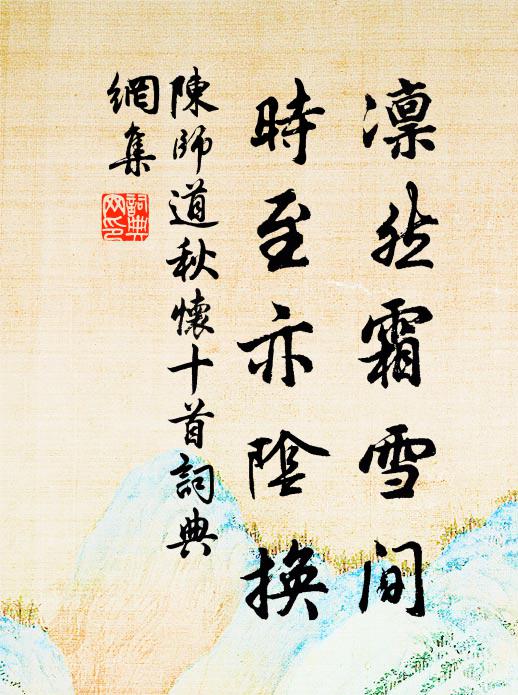 凛然霜雪间
時至亦陰換
陳師道秋懷十首詞典
網集
詞典
网印